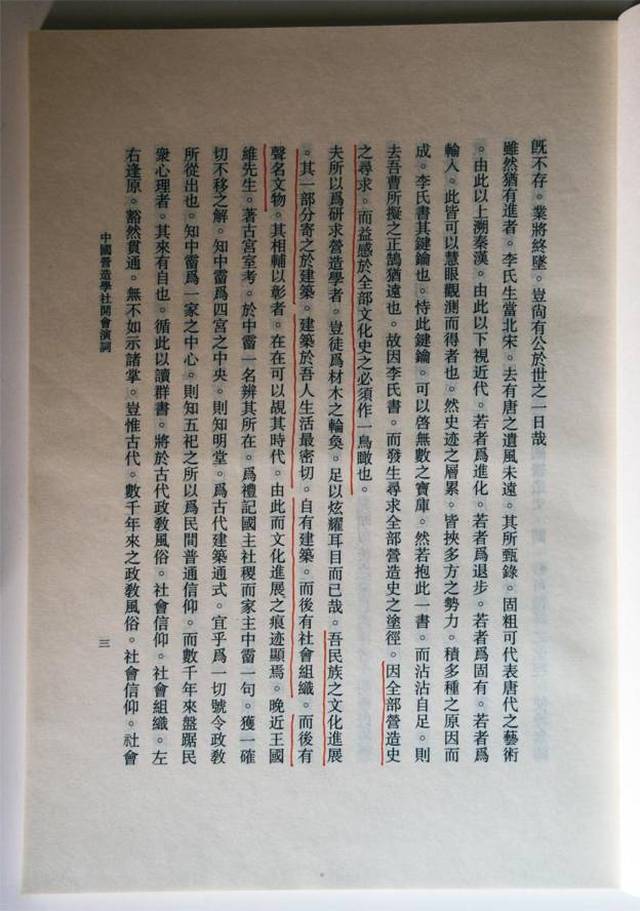 旣不存。業將終墜。豈尙有公於世之一日哉
雖然猶有進者。李氏生當北宋。去有唐之遺風未遠。其所甄錄。固粗可代表唐代之藝術
。由此以上溯秦漢。由此以下視近代。若者爲進化。若者爲退步。若者爲固有。若者爲
輸入。此皆可以慧眼觀測而得者也。然史迹之層累。皆挾多方之勢力。積多種之原因而
成。李氏書其鍵鑰也。恃此鍵鑰。可以啓無數之寶庫。然若抱此一書。而沾沾自足。則
去吾曹所擬之正鵠猶遠也。故因李氏書。而發生尋求全部營造史之塗徑。因全部營造史
之尋求。而益感於全部文化史之必須作一鳥瞰也。
夫所以爲研求營造學者。豈徒爲材木之輪奐。足以炫耀耳目而已哉。吾民族之文化進展
。其一部分寄之於建築。建築於吾人生活最密切。自有建築。而後有社會組織。而後有
聲名文物。其相輔以彰者。在在可以覘其時代。由此而文化進展之痕迹顯焉。晚近王國
維先生。著古宮室考。於中霤一名辨其所在。爲禮記國主社稷而家主中霤一句。獲一確
切不移之解。知中霤爲四宮之中央。則知明堂。爲古代建築通式。宜乎爲一切號令政敎
所從出也。知中霤爲一家之中心。則知五祀之所以爲民間普通信仰。而數千年來盤踞民
衆心理者。其來有自也。循此以讀群書。將於古代政敎風俗。社會信仰。社會組織。左
右逢原。豁然貫通。無不如示諸掌。豈惟古代。數千年來之政敎風俗。社會信仰。社會
中國營造學社開會演詞
三